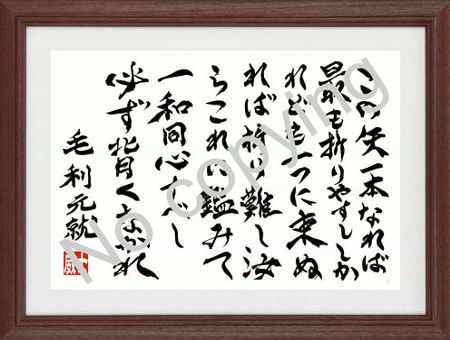 この矢一本なれば
最も折りやすししか
れども一つに束ぬ
れば折り難し汝
らこれに鑑みて
一和同心すべし
必ず背くなかれ
毛利元就
No copying